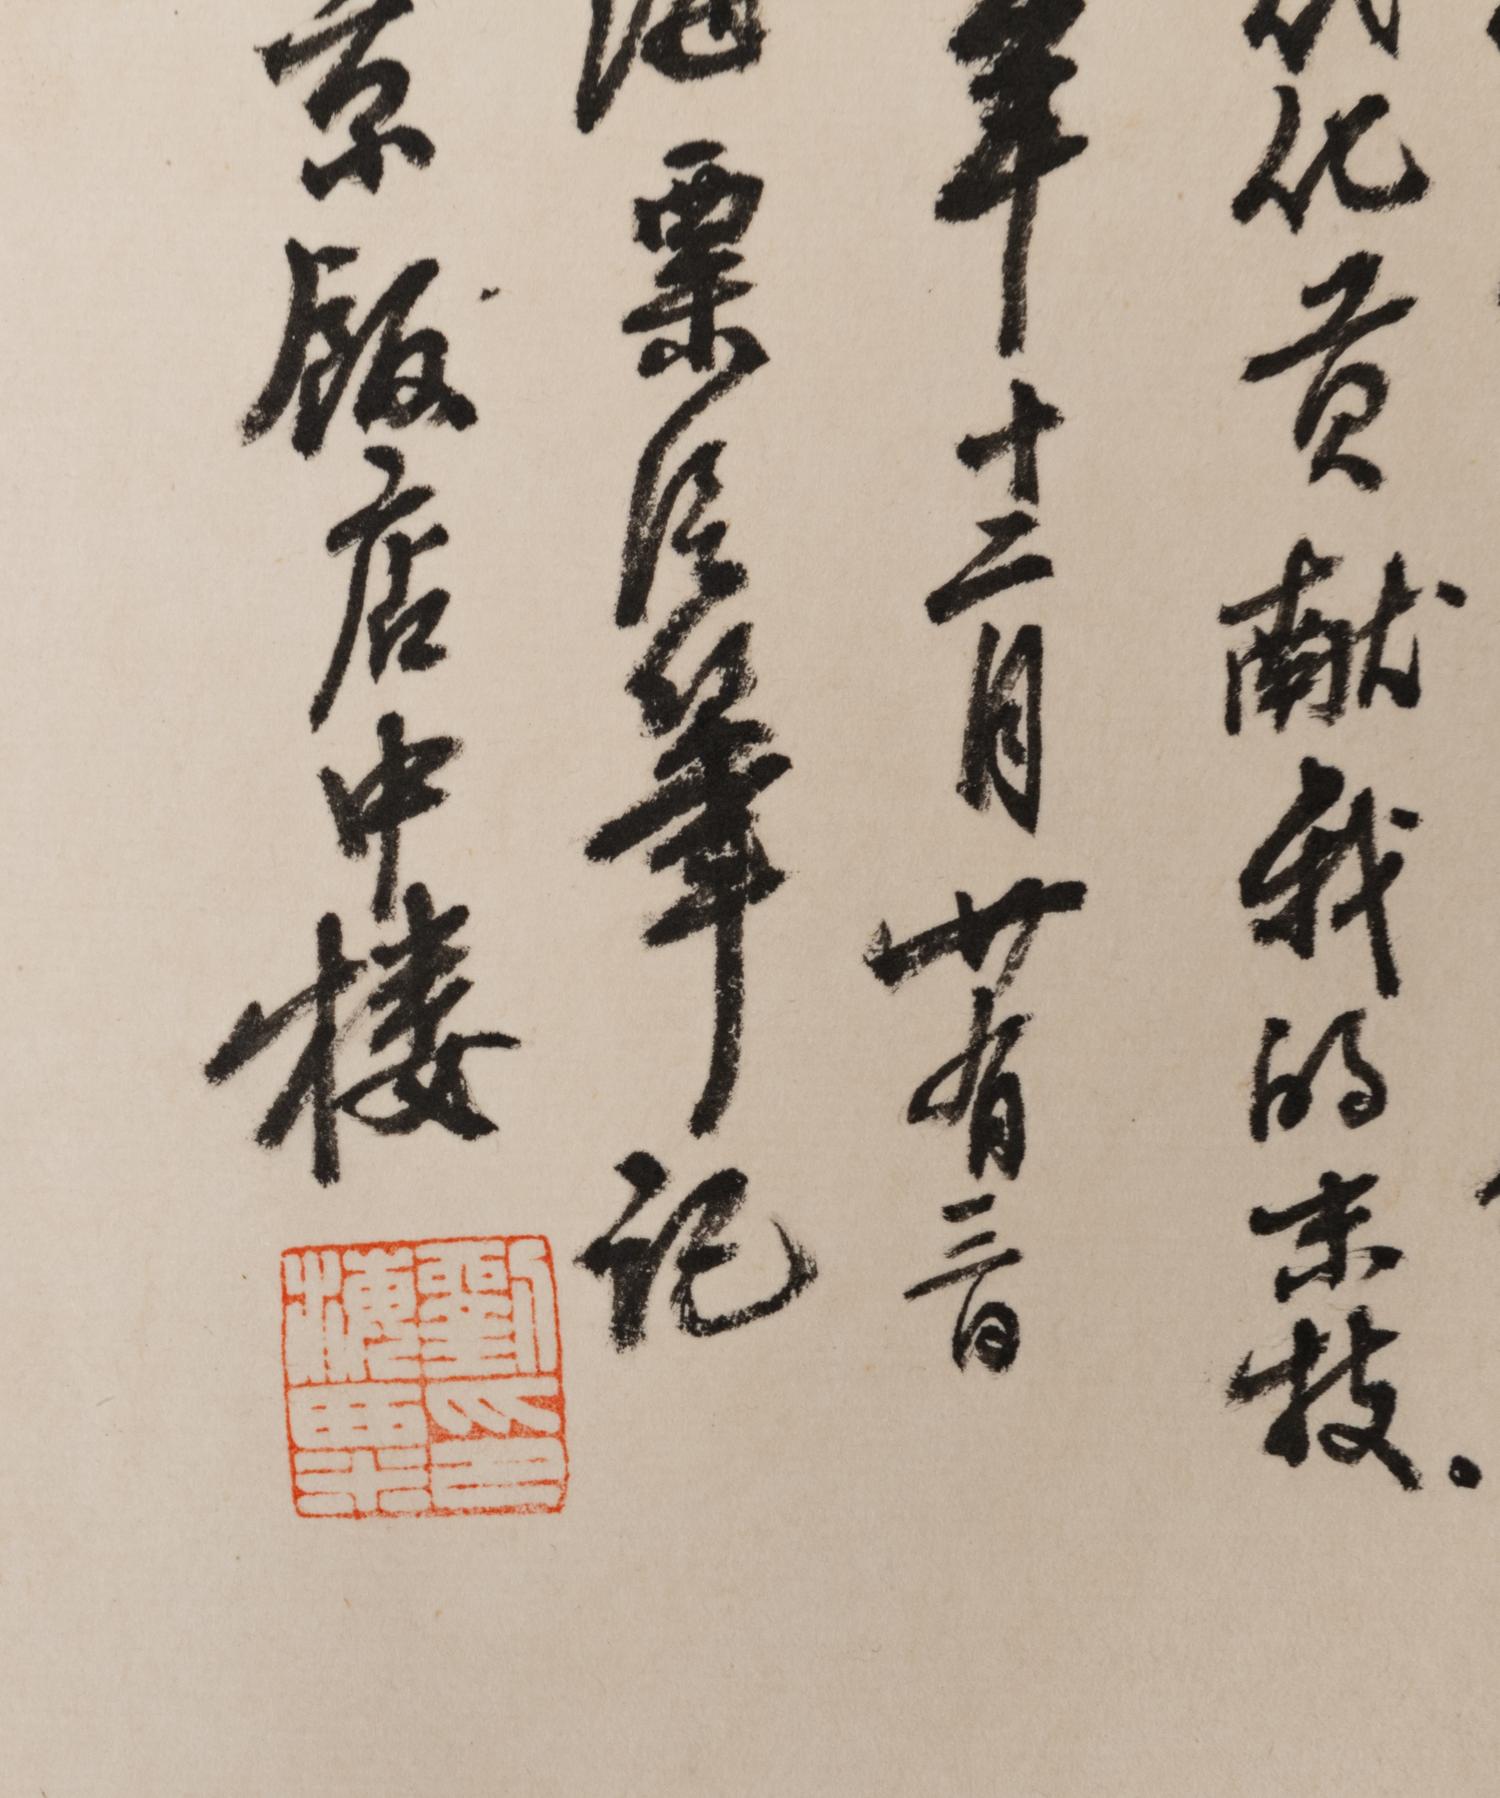 代化贡献我的末技.
年十二月廿有三日
海粟潑筆记
京飯店中楼
劉海粟之鉨